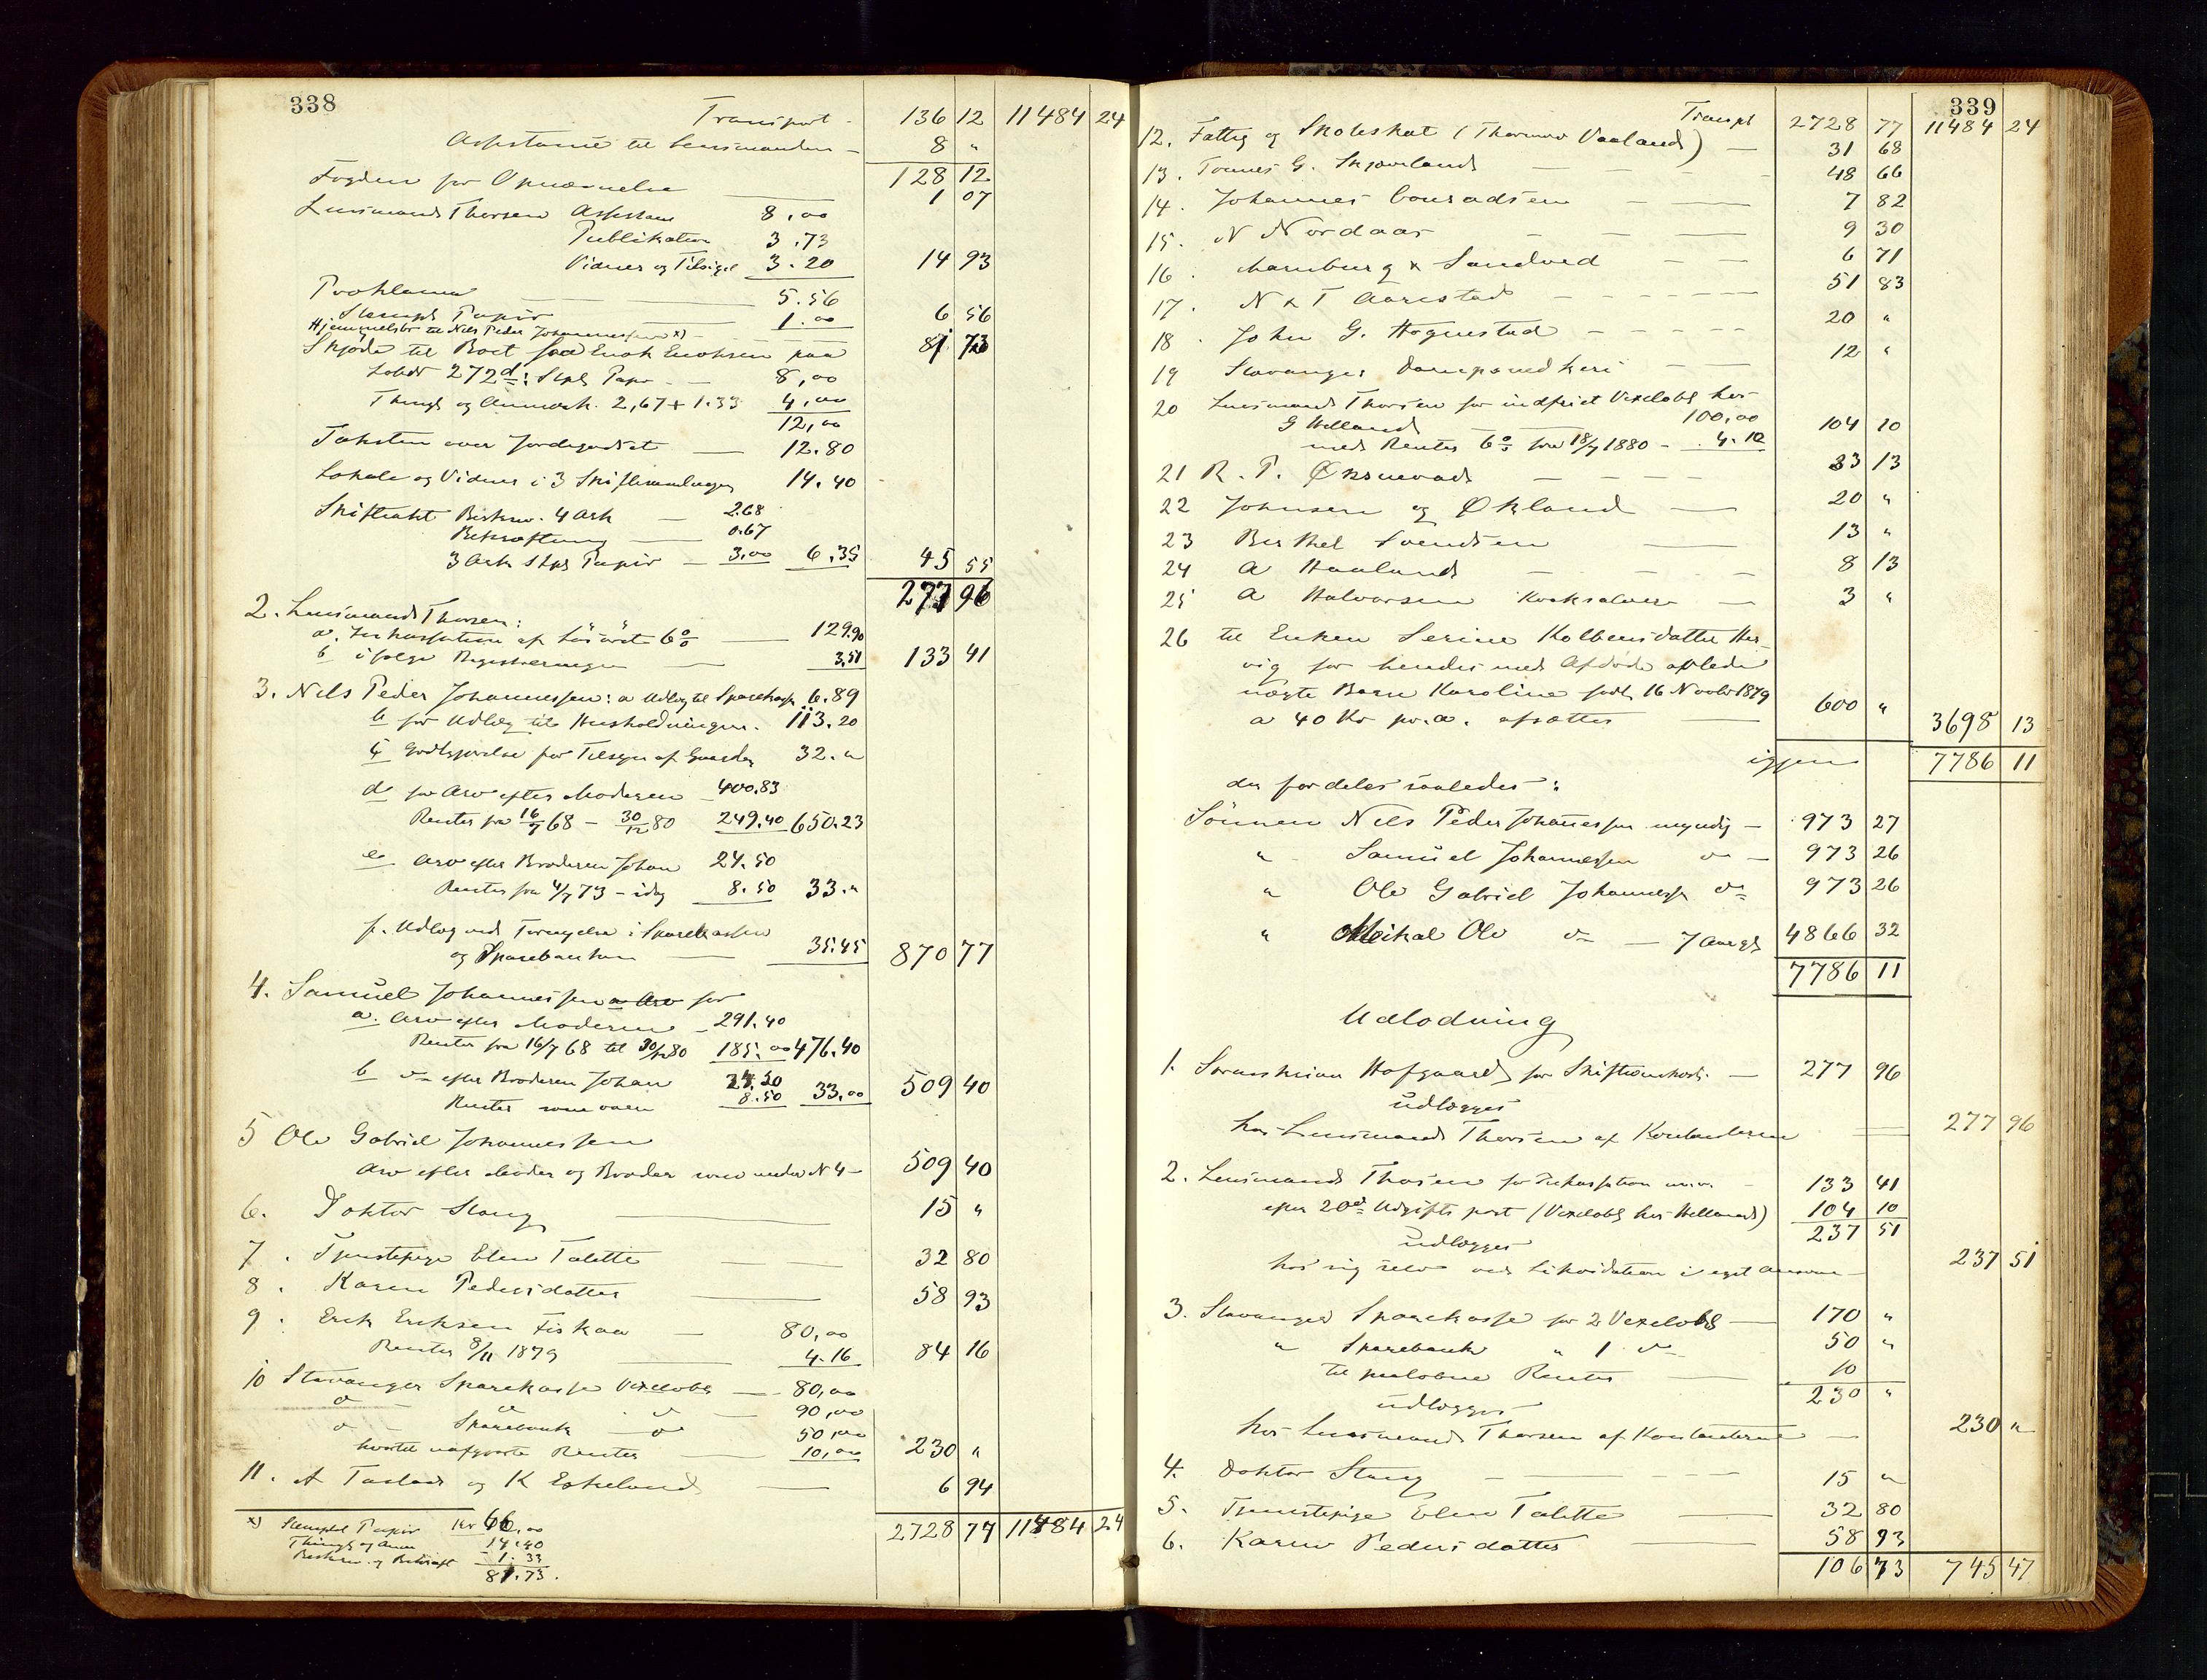 338
Transport - 136 12 11484 24
Assistance til Lensmanden - 8 "
128 12
Fogden for Opnævnelse 1 07
Lensmand Thorsen Assistance 8,00
Publikation 3.73
Vidner og Tilsigel 3.20 14 93
Proklama 5.56
Stempl Papir 1.00 6 56
Hjemmelsbr til Nils Peder Johannessen x)
Skjøde til Boet fra Enok Enoksen paa 81 73
Lobnr 272d: Stpl Papr - 8,00
Thingl og Anmærk. 2,67 + 1.33 4,00
12,00
Taksten over Jordegodset 12.80
Lokale og Vidner i 3 Skiftesamlinger 14.40
Skifteakt Beskriv. 4 Ark 2.68
Bekræftning 0.67
3 Ark Stpl Papir - 3,00 6.35 45 55
277 96
2. Lensmand Thorsen:
a. Inkassation af Løsøret 6% 129.90
b ifølge Registreringen 3,51 133 41
3. Nils Peder Johannessen: a Udlæg til Sparekasse 6.89
b for Udlæg til Husholdningen. 113.20
c Godtgjørelse for Tilsyn af Gaarden 32."
d for Arv efter Moderen 400.83
Renter fra 16/7 68 - 30/12 80 249.40 650.23
e Arv efter Broderen Johan 24.50
Renter fra 4/7 73 - idag 8.50 33."
f. Udlæg ved Fornyelse i Sparekassen
og Sparebanken 35.45 870 77
4. Samuel Johannessen a Arv for
a. Arv efter Moderen - 291.40
Renter fra 16/7 68 til 30/12 80 185.00 476.40
b do efter Broderen Johan 24.50
Renter som oven 8.50 33,00 509 40
5 Ole Gabriel Johannessen
Arv efter Moder og Broder som under N 4 - 509 40
6. Doktor Stang 15 "
7. Tjenstepige Elen Talette 32 80
8. Karen Pedersdatter 58 93
9. Erik Eriksen Fiskaa - 80,00
Renter 8/11 1879 4.16 84 16
10 Stavanger Sparekasse Vexelobl - 80,00
do do do - 90,00
do - Sparebank - do 50,00
hvortil uafgjorte Renter 10,00 230 "
11. A Tastad og K Eskelund 6 94
2728 77 11484 24
x) Stemplet Papir Kr 66,00
Thingl og Anm 14.40
Beskriv. og Bekræft - 1.33
81.73.
339
Transpt 2728 77 11484 24
12. Fattig og Skoleskat (Thormod Vaaland) - 31 68
13. Tonnes G. Skjæveland 48 66
14. Johannes Conradsen 7 82
15. N Nordaas 9 30
16. Marnburg & Sandved 6 71
17. N & T Aarestad 51 83
18. John G. Hognestad 20 "
19 Stavanger Dampsmedkeri 12 "
20 Lensmand Thorsen for indfriet Vexelobl hos
G Welland 100,00
med Renter 6% fra 18/4 1880 - 4.10 104 10
21 R. P. Øksnevad 23 13
22 Johnsen og Økland 20 "
23 Berthel Svendsen 13 "
24 A Haaland 8 13
25 A Halvorsen Kvaksalver 3 "
26 til Enken Serine Kolbensdatter Her
vig for hendes med Afdøde avlede
uægte Barn Karoline født 16 Novbr 1879
a 40 Kr pr. a. afsættes 600 " 3698 13
igjen 7786 11
der fordeles saaledes:
Sønnen Nils Peder Johannessen myndig - 973 27
" Samuel Johannessen do - 973 26
" Ole Gabriel Johannessen do 973 26
" Meikal Ole do - 7 Aar gl 4866 32
7786 11
Udlodning
1. Sorenskriver Hofgaard for Skifteomkost. - 277 96
udlægges
hos Lensmand Thorsen af Kontanterne 277 96
2. Lensmand Thorsen for Inkassation m.v. 133 41
efter 20de Udgifts post (Vexelobl hos Welland) 104 10
237 51
udlægges
hos sig selv ved Likvidation i eget Ansvar - 237 51
3. Stavanger Sparekasse for 2 Vexelobl - 170 "
" Sparebank " 1 do 50 "
til paaløbne Renter 10
230 "
udlægges
hos Lensmand Thorsen af Kontanterne - 230 "
4. Doktor Stang 15 "
5. Tjenstepige Elen Talette 32 80
6. Karen Pedersdatter 58 93
106 73 745 47